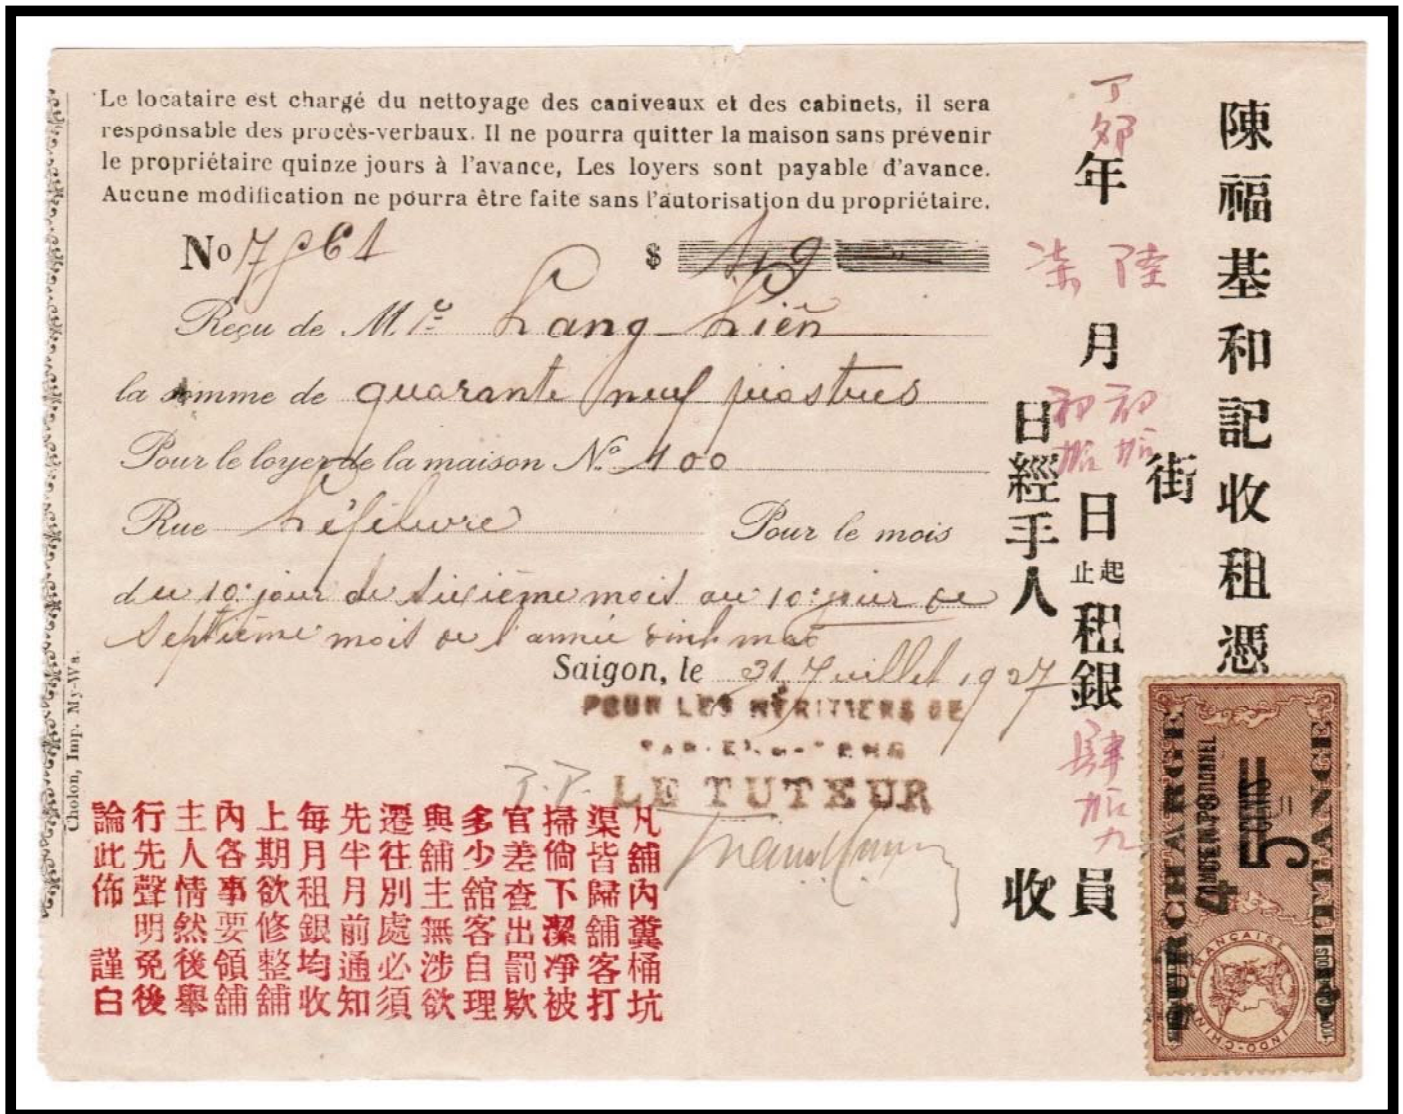 Le locataire est chargé du nettoyage des caniveaux et des cabinets, il sera
responsable des procès-verbaux. Il ne pourra quitter la maison sans prévenir
le propriétaire quinze jours à l'avance, Les loyers sont payable d'avance.
Aucune modification ne pourra être faite sans l'autorisation du propriétaire.
No $ 49
Reçu de M.
la somme de quarante neuf piastres
Pour le loyer de la maison No. 100
Rue Léfèbvre Pour le mois
du 10e jour de sixième mois au 10e jour de
septième mois de l'année dinh mao
Saigon, le 31 Juillet 1927
POUR LES HÉRITIERS DE
P.P. LE TUTEUR
Cholon, Imp. My-Va.
陳福基和記收租憑
街
丁卯年陸柒月初拾初拾日起止租銀肆拾九員
日經手人 收
凡舖內糞桶坑
渠皆歸舖客打
掃倘下潔净被
官差查出罰欵
多少舘客自理
與舖主無涉欲
遷往別處必須
先半月前通知
每月租銀均收
上期欲修整舖
內各事要領舖
主人情然後舉
行先聲明免後
論此佈 謹白
SURCHARGE
4
5 CENTS
QUITTANCE
INDO-CHINE FRANÇAISE